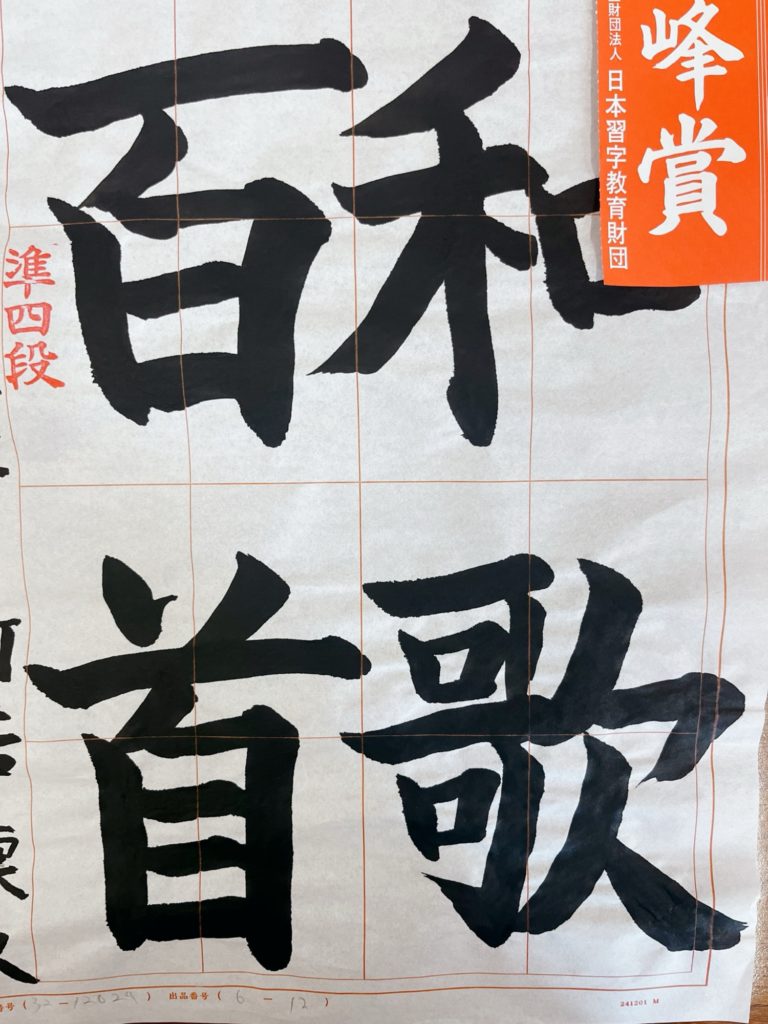 峰賞
財団法人 日本習字教育財団
和歌
百首
準四段
番号 (32-12024) 出品番号 (6-12)
241201 M